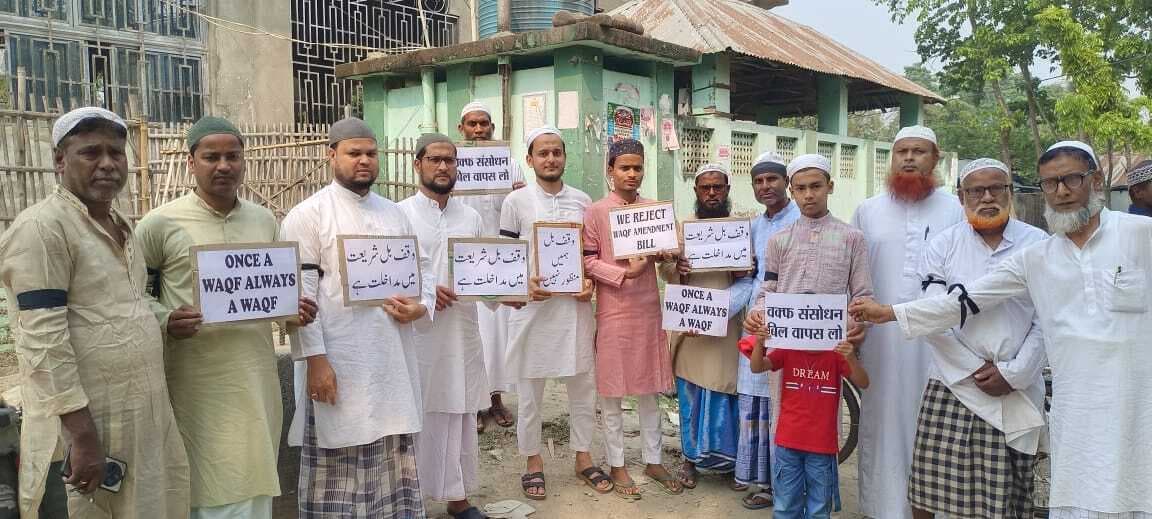 ONCE A
WAQF ALWAYS
A WAQF
وقف بل شریعت
میں مداخلت ہے
وقف بل شریعت
میں مداخلت ہے
वक्फ संसोधन
बिल वापस लो
وقف بل
ہمیں
منظور نہیں
WE REJECT
WAQF AMENDMENT
BILL
وقف بل شریعت
میں مداخلت ہے
ONCE A
WAQF ALWAYS
A WAQF
वक्फ संसोधन
बिल वापस लो
DREAM